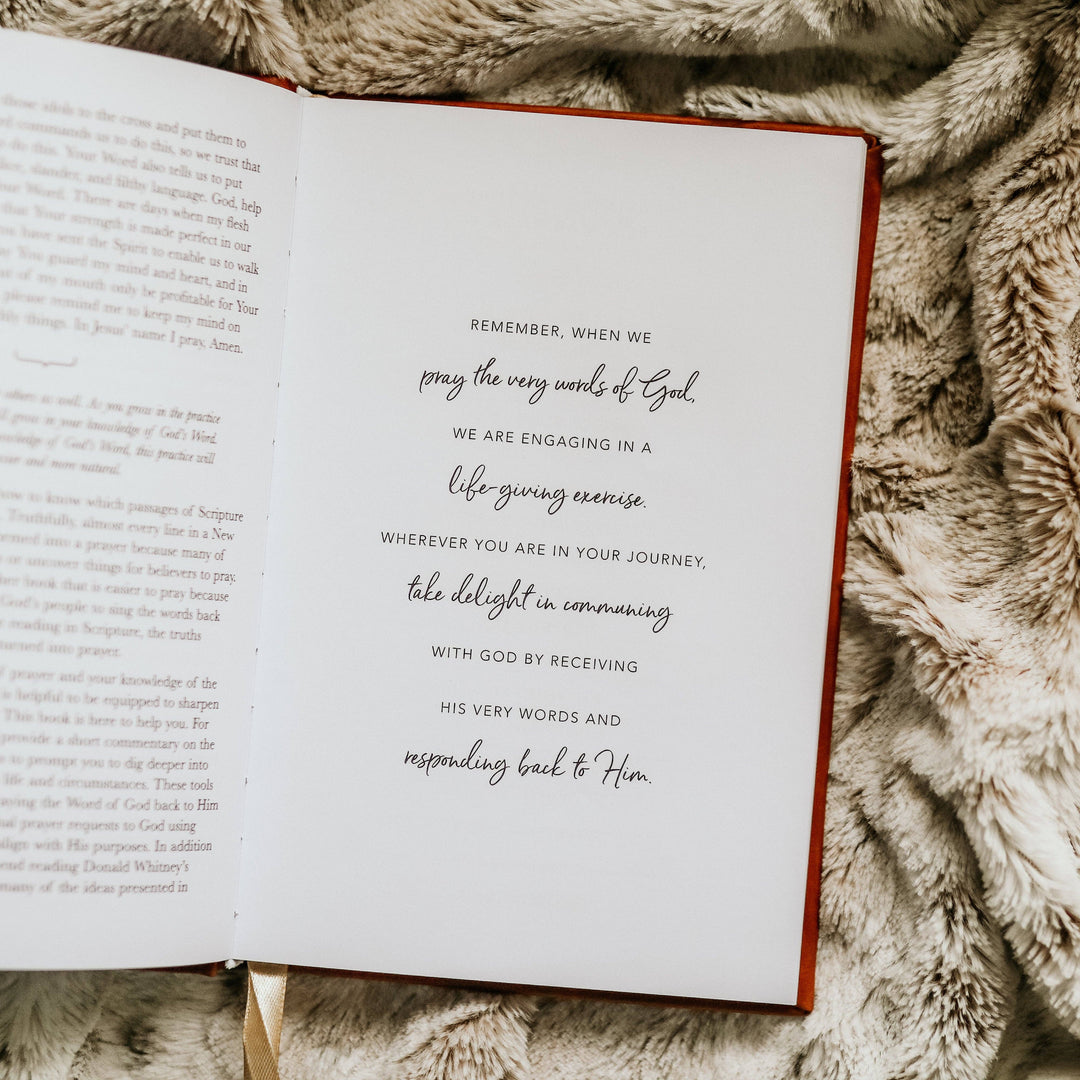 those idols to the cross and put them to
commands us to do this, so we trust that
do this. Your Word also tells us to put
slander, and filthy language. God, help
Your Word. There are days when my flesh
that Your strength is made perfect in our
you have sent the Spirit to enable us to walk
You guard my mind and heart, and in
of my mouth only be profitable for Your
please remind me to keep my mind on
things. In Jesus' name I pray, Amen.
others as well. As you grow in the practice
grow in your knowledge of God's Word.
knowledge of God's Word, this practice will
and more natural.
how to know which passages of Scripture
Truthfully, almost every line in a New
turned into a prayer because many of
or uncover things for believers to pray.
book that is easier to pray because
God's people to sing the words back
reading in Scripture, the truths
turned into prayer.
prayer and your knowledge of the
is helpful to be equipped to sharpen
This book is here to help you. For
provide a short commentary on the
to prompt you to dig deeper into
life and circumstances. These tools
the Word of God back to Him
prayer requests to God using
align with His purposes. In addition
reading Donald Whitney's
many of the ideas presented in
REMEMBER, WHEN WE
pray the very words of God,
WE ARE ENGAGING IN A
life-giving exercise.
WHEREVER YOU ARE IN YOUR JOURNEY,
take delight in communing
WITH GOD BY RECEIVING
HIS VERY WORDS AND
responding back to Him.